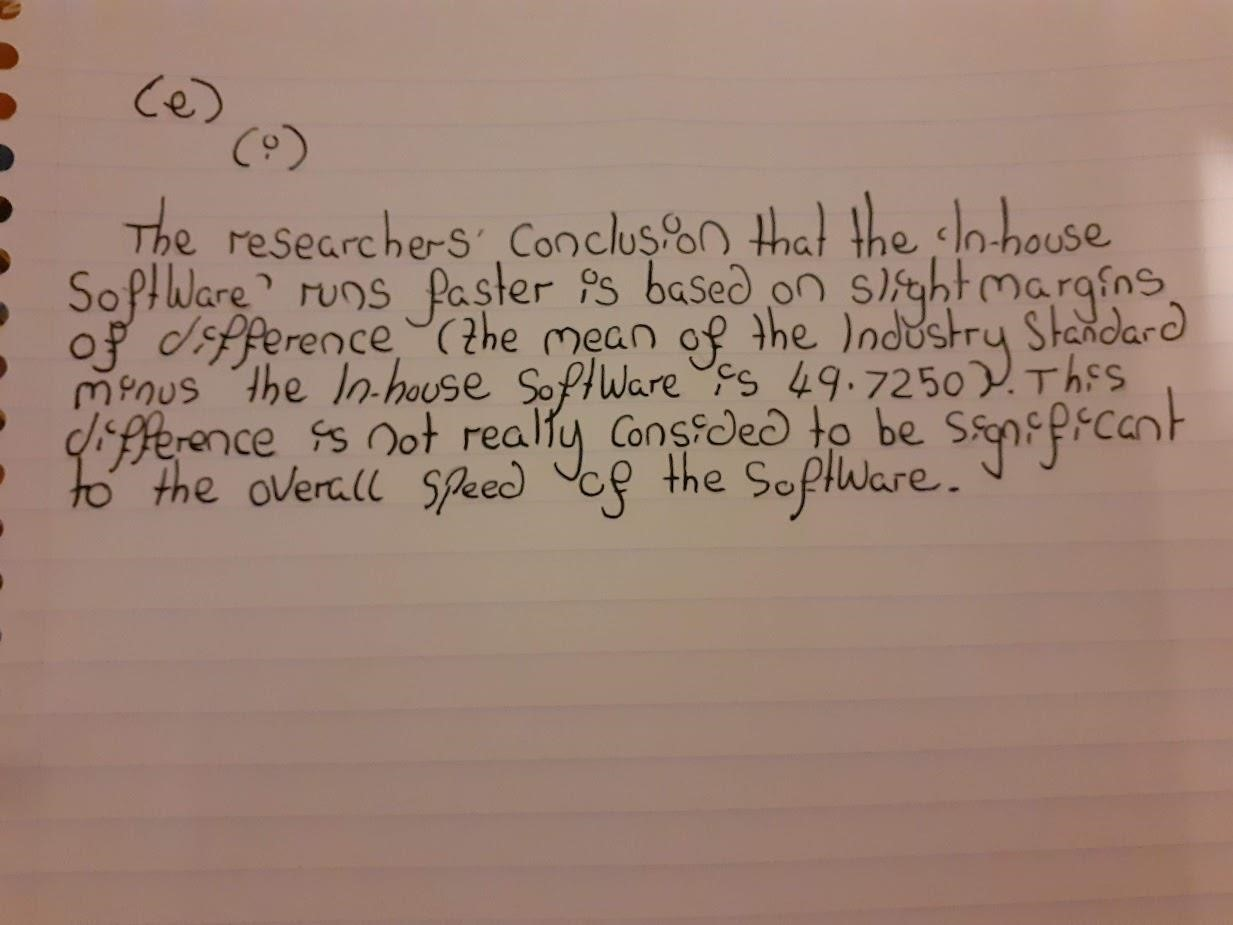 (e)
(i)
The researchers' conclusion that the 'In-house
Software' runs faster is based on slight margins
of difference (the mean of the Industry Standard
minus the In-house Software is 49.7250). This
difference is not really consided to be significant
to the overall speed of the Software.